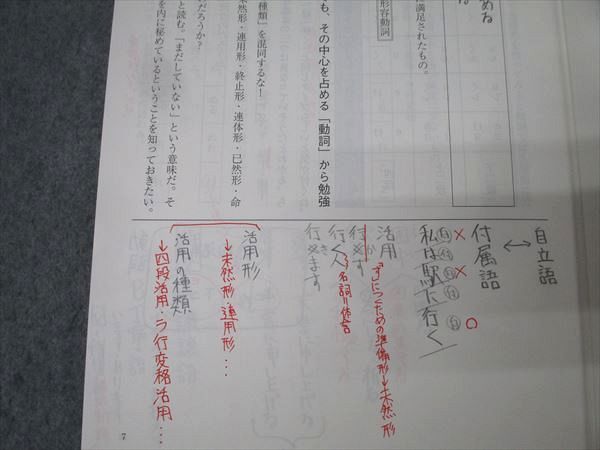 める
満足されたもの。
形容動詞
も、その中心を占める「動詞」から勉強
種類」を混同するな！
然形・連用形・終止形・連体形・已然形・命
だろうか？
と読む。「まだしていない」という意味だ。そ
を内に秘めているということを知っておきたい。
自立語
↔
付属語
私は駅に行く
自 付 自 付 自
× × ○
活用
「ず」につくための準備形→未然形
行かず
行く人
名詞=体言
行きます
活用形
→未然形・連用形…
活用の種類
→四段活用・ラ行変格活用…
7